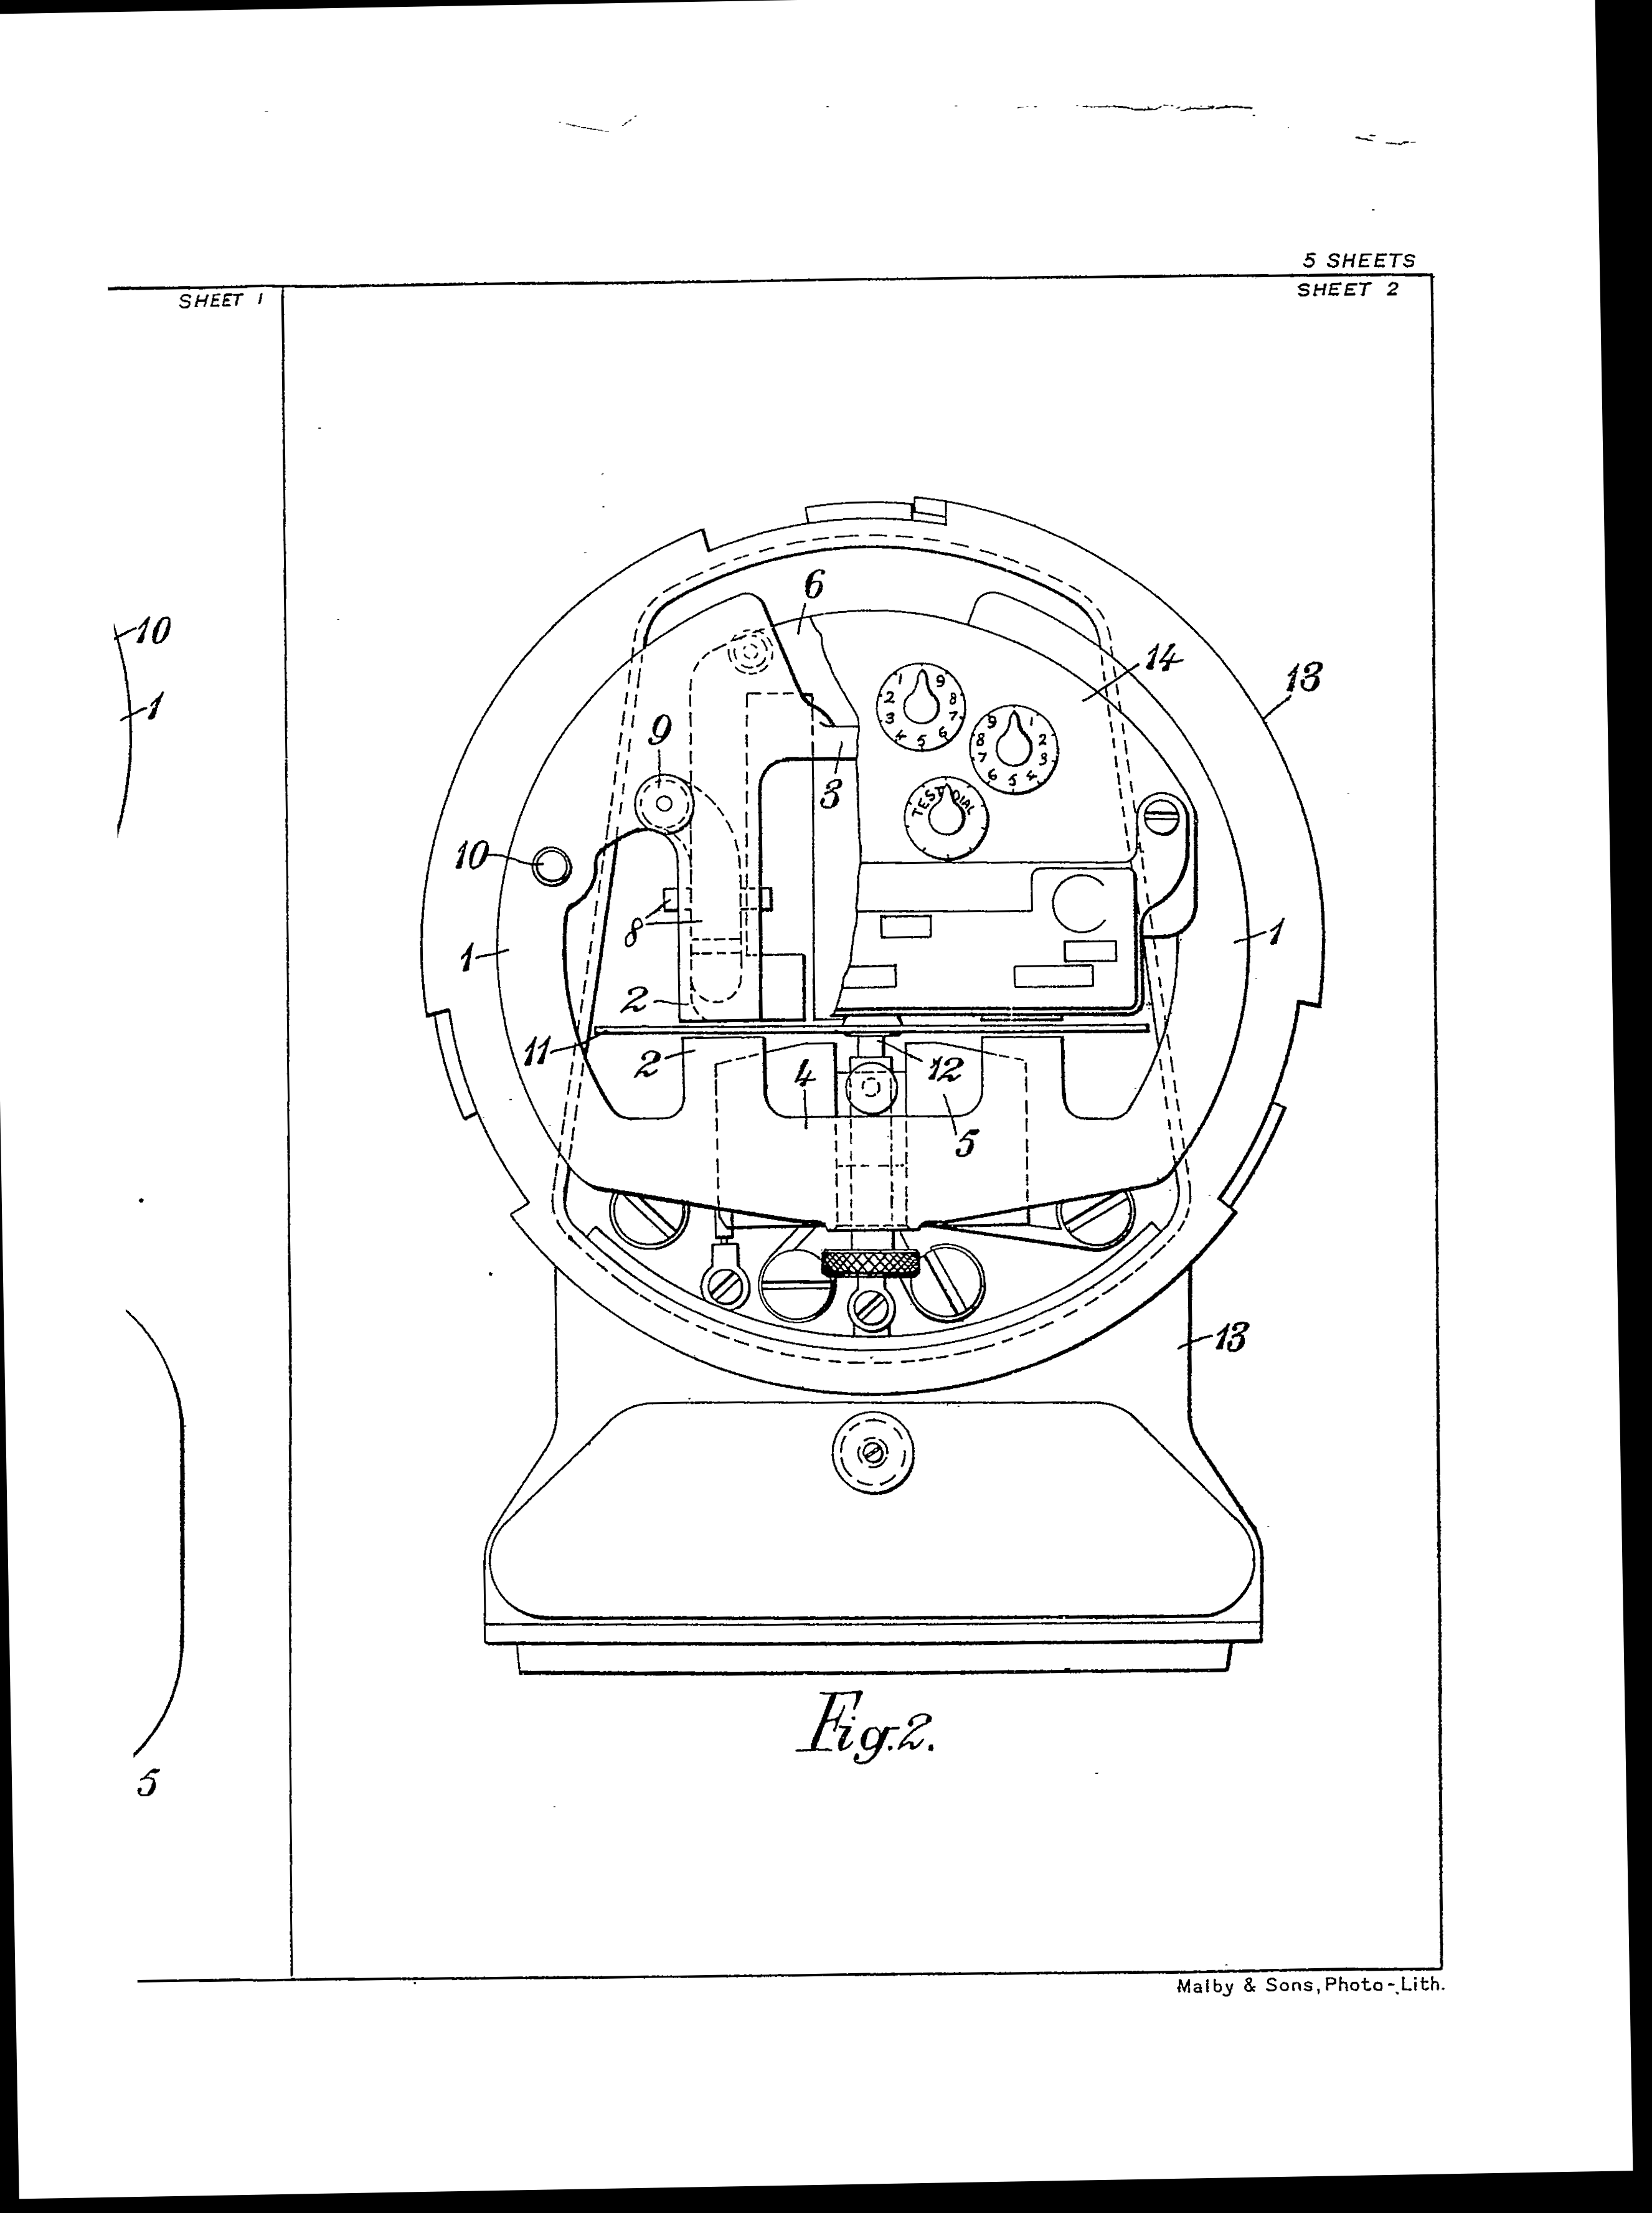 5 SHEETS
SHEET 1
SHEET 2
10
1
5
6
14
13
9
3
10
8
1
1
2
11
2
4
12
5
13
1 2 3 4 5 6 7 8 9
9 8 7 6 5 4 3 2 1
TEST DIAL
Fig.2.
Malby & Sons, Photo-Lith.